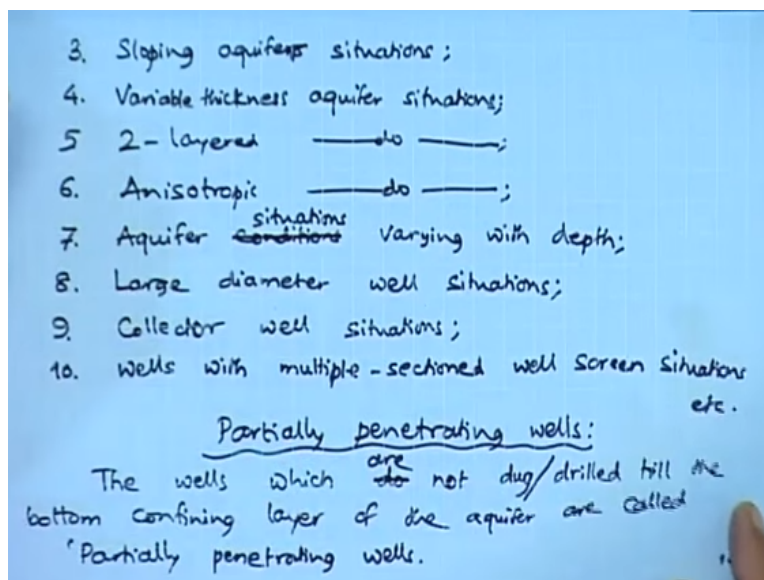 3. Sloping aquifers situations;
4. Variable thickness aquifer situations;
5 2-layered ——do——;
6. Anisotropic ——do——;
situations
7. Aquifer conditions varying with depth;
8. Large diameter well situations;
9. Collector well situations;
10. Wells with multiple-sectioned well screen situations
etc.
Partially penetrating wells:
are
The wells which do not dug/drilled till the
bottom confining layer of the aquifer are called
'Partially penetrating wells.